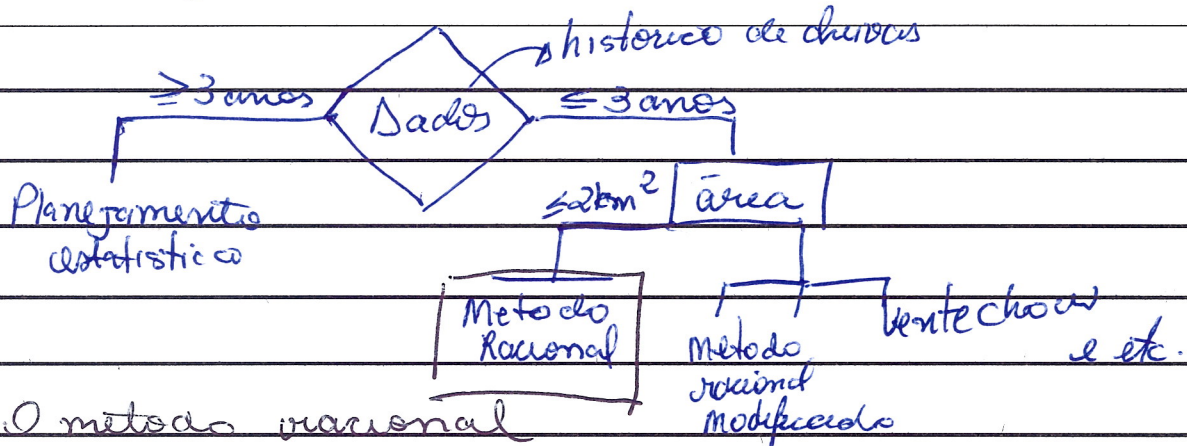 historico de chuvas
≥ 3 anos
Dados
≤ 3 anos
Planejamento
estatistico
≤2km² área
Metodo
Racional
Metodo
racional
Modificado
Ventechow
e etc.
O metodo racional